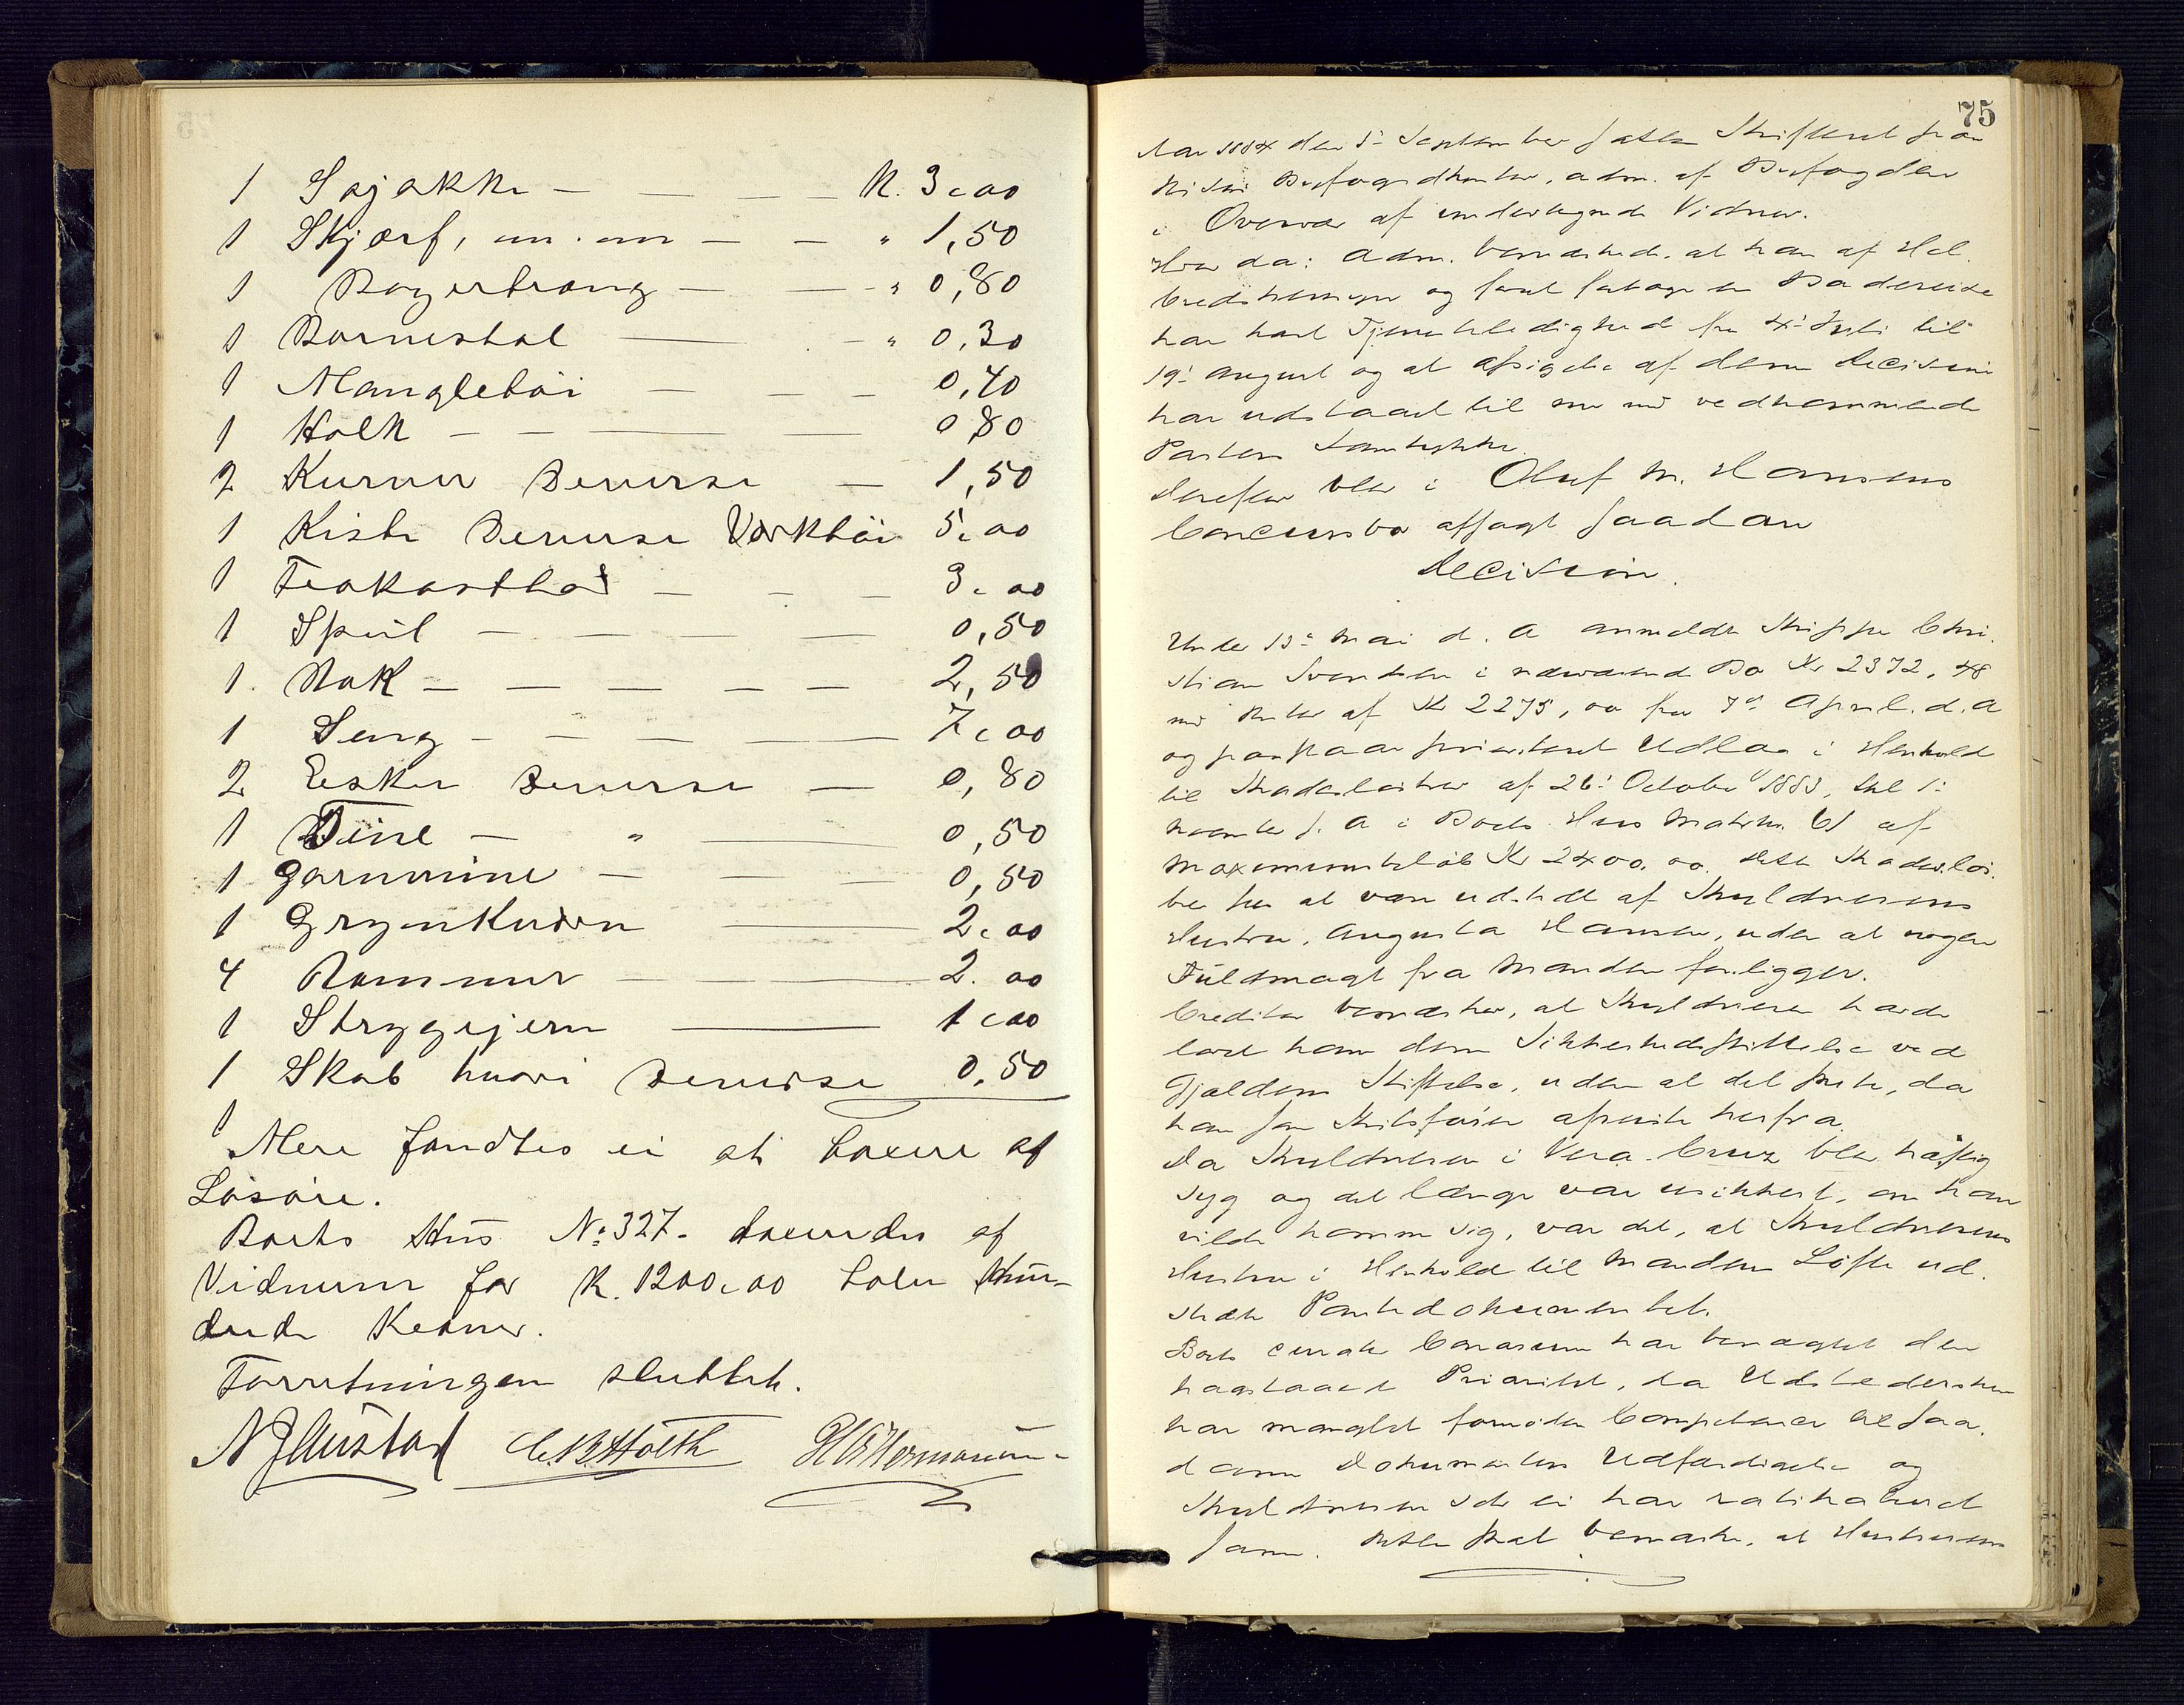 1 Søjakke — — — K. 3,00
1 Skjærf, m. m — — " 1,50
1 — — " 0,80
1 Barnestol — — " 0,30
1 Manglebøi — — — 0,40
1 Holk — — — 0,80
2 Kurver Deverse — 1,50
1 Kiste Deverse Verktøi 5,00
1 — — — 3,00
1 Speil — — — 0,50
1. Rok — — — — — 2,50
1 Seng — — — — 7,00
2 Esker Deverse — 0,80
1 Tine — " — 0,50
1 Garnvinne — — — 0,50
1 Grynkværn — 2,00
4 Rammer — — 2.00
1 Strygejern — 1,00
1 Skab hvori Deverse 0,50
1
Mere fandtes ei at taxere af
Løsøre.
Boets Hus No: 327. taxeredes af
Vidnerne for K. 1200,00 tolv Hun-
drede Kroner.
Forretningen sluttet.
N J Mustad C. B. Holth
75
Aar 1884 den 5te September sattes Skifteret paa
Byfogedkontor, adm. af Byfogden
i Overvær af undertegnede Vidner.
Hvor da: Adm. bemærkede, at han af Hel-
bredshensyn og for at foretage en Badereise
har havt Tjenestledighed fra 4de Juli til
19de August og at Afsigelse af denne Decision
har udstaaet til nu med vedkommende
Parters Samtykke.
Derefter blev i Oluf M. Hansens
Concursbo afsagt saadan
Decision.
Under 13de Mai d. A anmeldte Skipper Chri-
stian Svendsen i nærværende Bo Kr 2372,48
med Renter af Kr 2275,00 fra 7de April d. A
og paastaar prioriteret Udlæg i Henhold
til Skadesløsbrev af 26de October 1883, thl 1ste
f. A i Boets Hus Matr. No 61 af
Maximumsbeløb Kr 2400,00. Dette Skadesløs-
brev sees at være udstedt af Skyldnerens
Hustru, Augusta Hansen, uden at nogen
Fuldmagt fra Manden foreligger.
Creditor bemærker, at Skyldneren havde
lovet ham denne Sikkerhedsstillelse ved
Gjældens Stiftelse, uden at det skete, da
han som Skibsfører afreiste herfra.
Da Skyldneren i Vera-Cruz blev hæftig
syg og det længe var usikkert, om han
vilde komme sig, var det, at Skyldnerens
Hustru i Henhold til Mandens Løfte ud-
stedte Pantedokumentet.
Boets Curator har benægtet den
paastaaede Prioritet, da Udstedersken
har manglet fornøden Competence til saa-
danne Dokumenters Udfærdigelse og
Skyldneren ei har ratihaberet
samme. Retten skal bemærke, at Hustruens